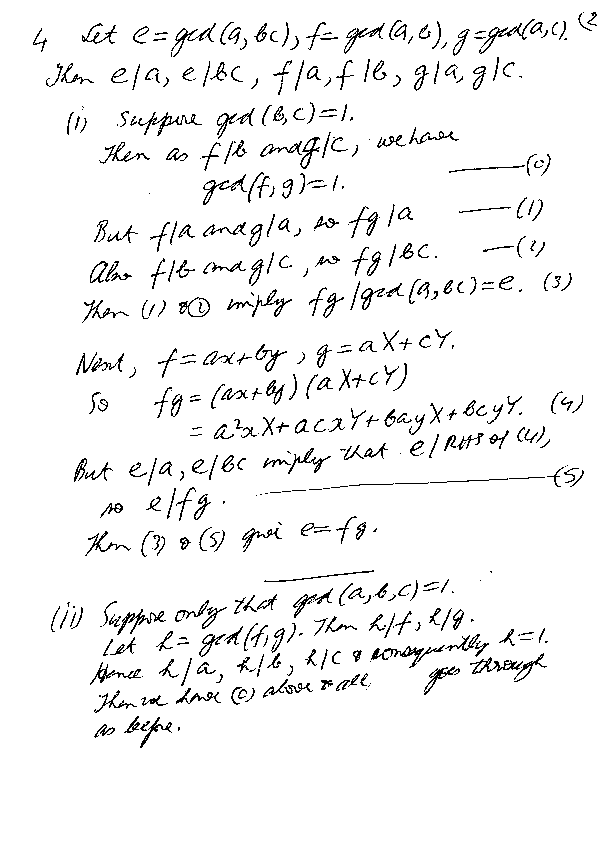 4 Let e=gcd(a,bc), f=gcd(a,b), g=gcd(a,c). (2
Then e|a, e|bc, f|a, f|b, g|a, g|c.
(i) Suppose gcd(b,c)=1.
Then as f|b and g|c, we have
gcd(f,g)=1. ——(0)
But f|a and g|a, so fg|a ——(1)
Also f|b and g|c, so fg|bc. —(2)
Then (1) & (2) imply fg|gcd(a,bc)=e. (3)
Next, f=ax+by, g=aX+cY.
So fg=(ax+by)(aX+cY)
=a²xX+acxY+bayX+bcyY. (4)
But e|a, e|bc imply that e|RHS of (4),
so e|fg. ——(5)
Then (3) & (5) give e=fg.
(ii) Suppose only that gcd(a,b,c)=1.
Let h=gcd(f,g). Then h|f, h|g.
Hence h|a, h|b, h|c & consequently h=1.
Then we have (0) above & all goes through
as before.